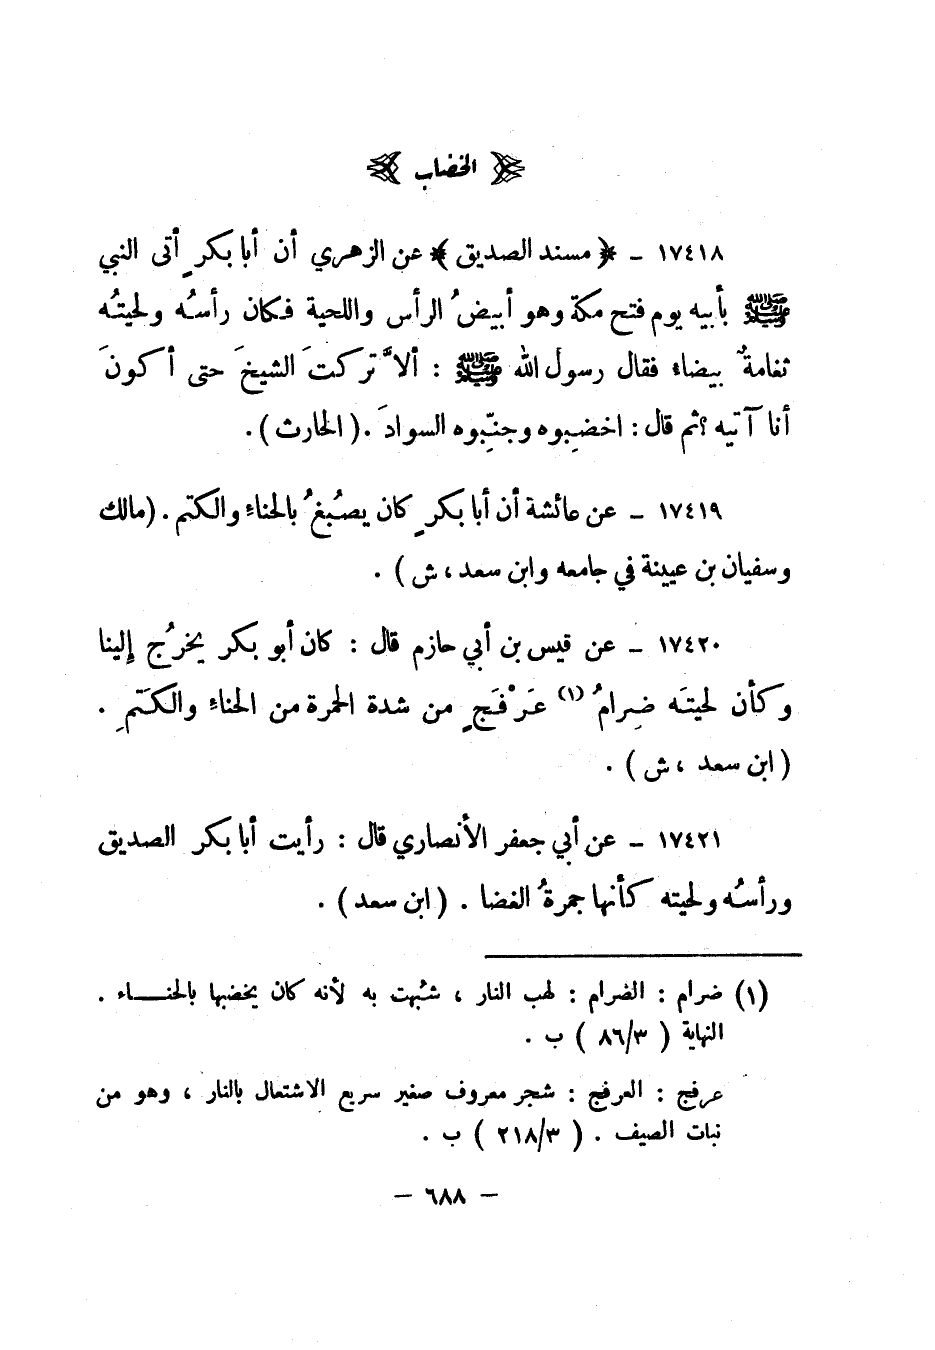 الخضاب
١٧٤١٨ ـ ﴿ مسند الصديق ﴾ عن الزهري أن أبا بكرٍ أتى النبي
ﷺ بأبيه يوم فتح مكة وهو أبيضُ الرأس واللحية فكان رأسُه ولحيتُه
ثغامةٌ بيضاء فقال رسول الله ﷺ : ألاَّ تركتَ الشيخَ حتى أكونَ
أنا آتيه ؟ ثم قال : اخضِبوه وجنِّبوه السوادَ . ( الحارث ) .
١٧٤١٩ ـ عن عائشة أن أبا بكرٍ كان يصبُغُ بالحناءِ والكتم . (مالك
وسفيان بن عيينة في جامعه وابن سعد ، ش ) .
١٧٤٢٠ ـ عن قيس بن أبي حازم قال : كان أبو بكر يخرُج إلينا
وكأن لحيتَه ضِرامُ (١) عَرْفَجٍ من شدة الحمرة من الحناءِ والكتَمِ .
( ابن سعد ، ش ) .
١٧٤٢١ ـ عن أبي جعفر الأنصاري قال : رأيت أبا بكر الصديق
ورأسُه ولحيته كأنها جمرةُ الغضا . ( ابن سعد ) .
(١) ضرام : الضرام : لهب النار ، شبُهت به لأنه كان يخضبها بالحنـــاء .
النهاية ( ٨٦/٣ ) ب .
عرفج : العرفج : شجر معروف صغير سريع الاشتعال بالنار ، وهو من
نبات الصيف . ( ٢١٨/٣ ) ب .
– ٦٨٨ –